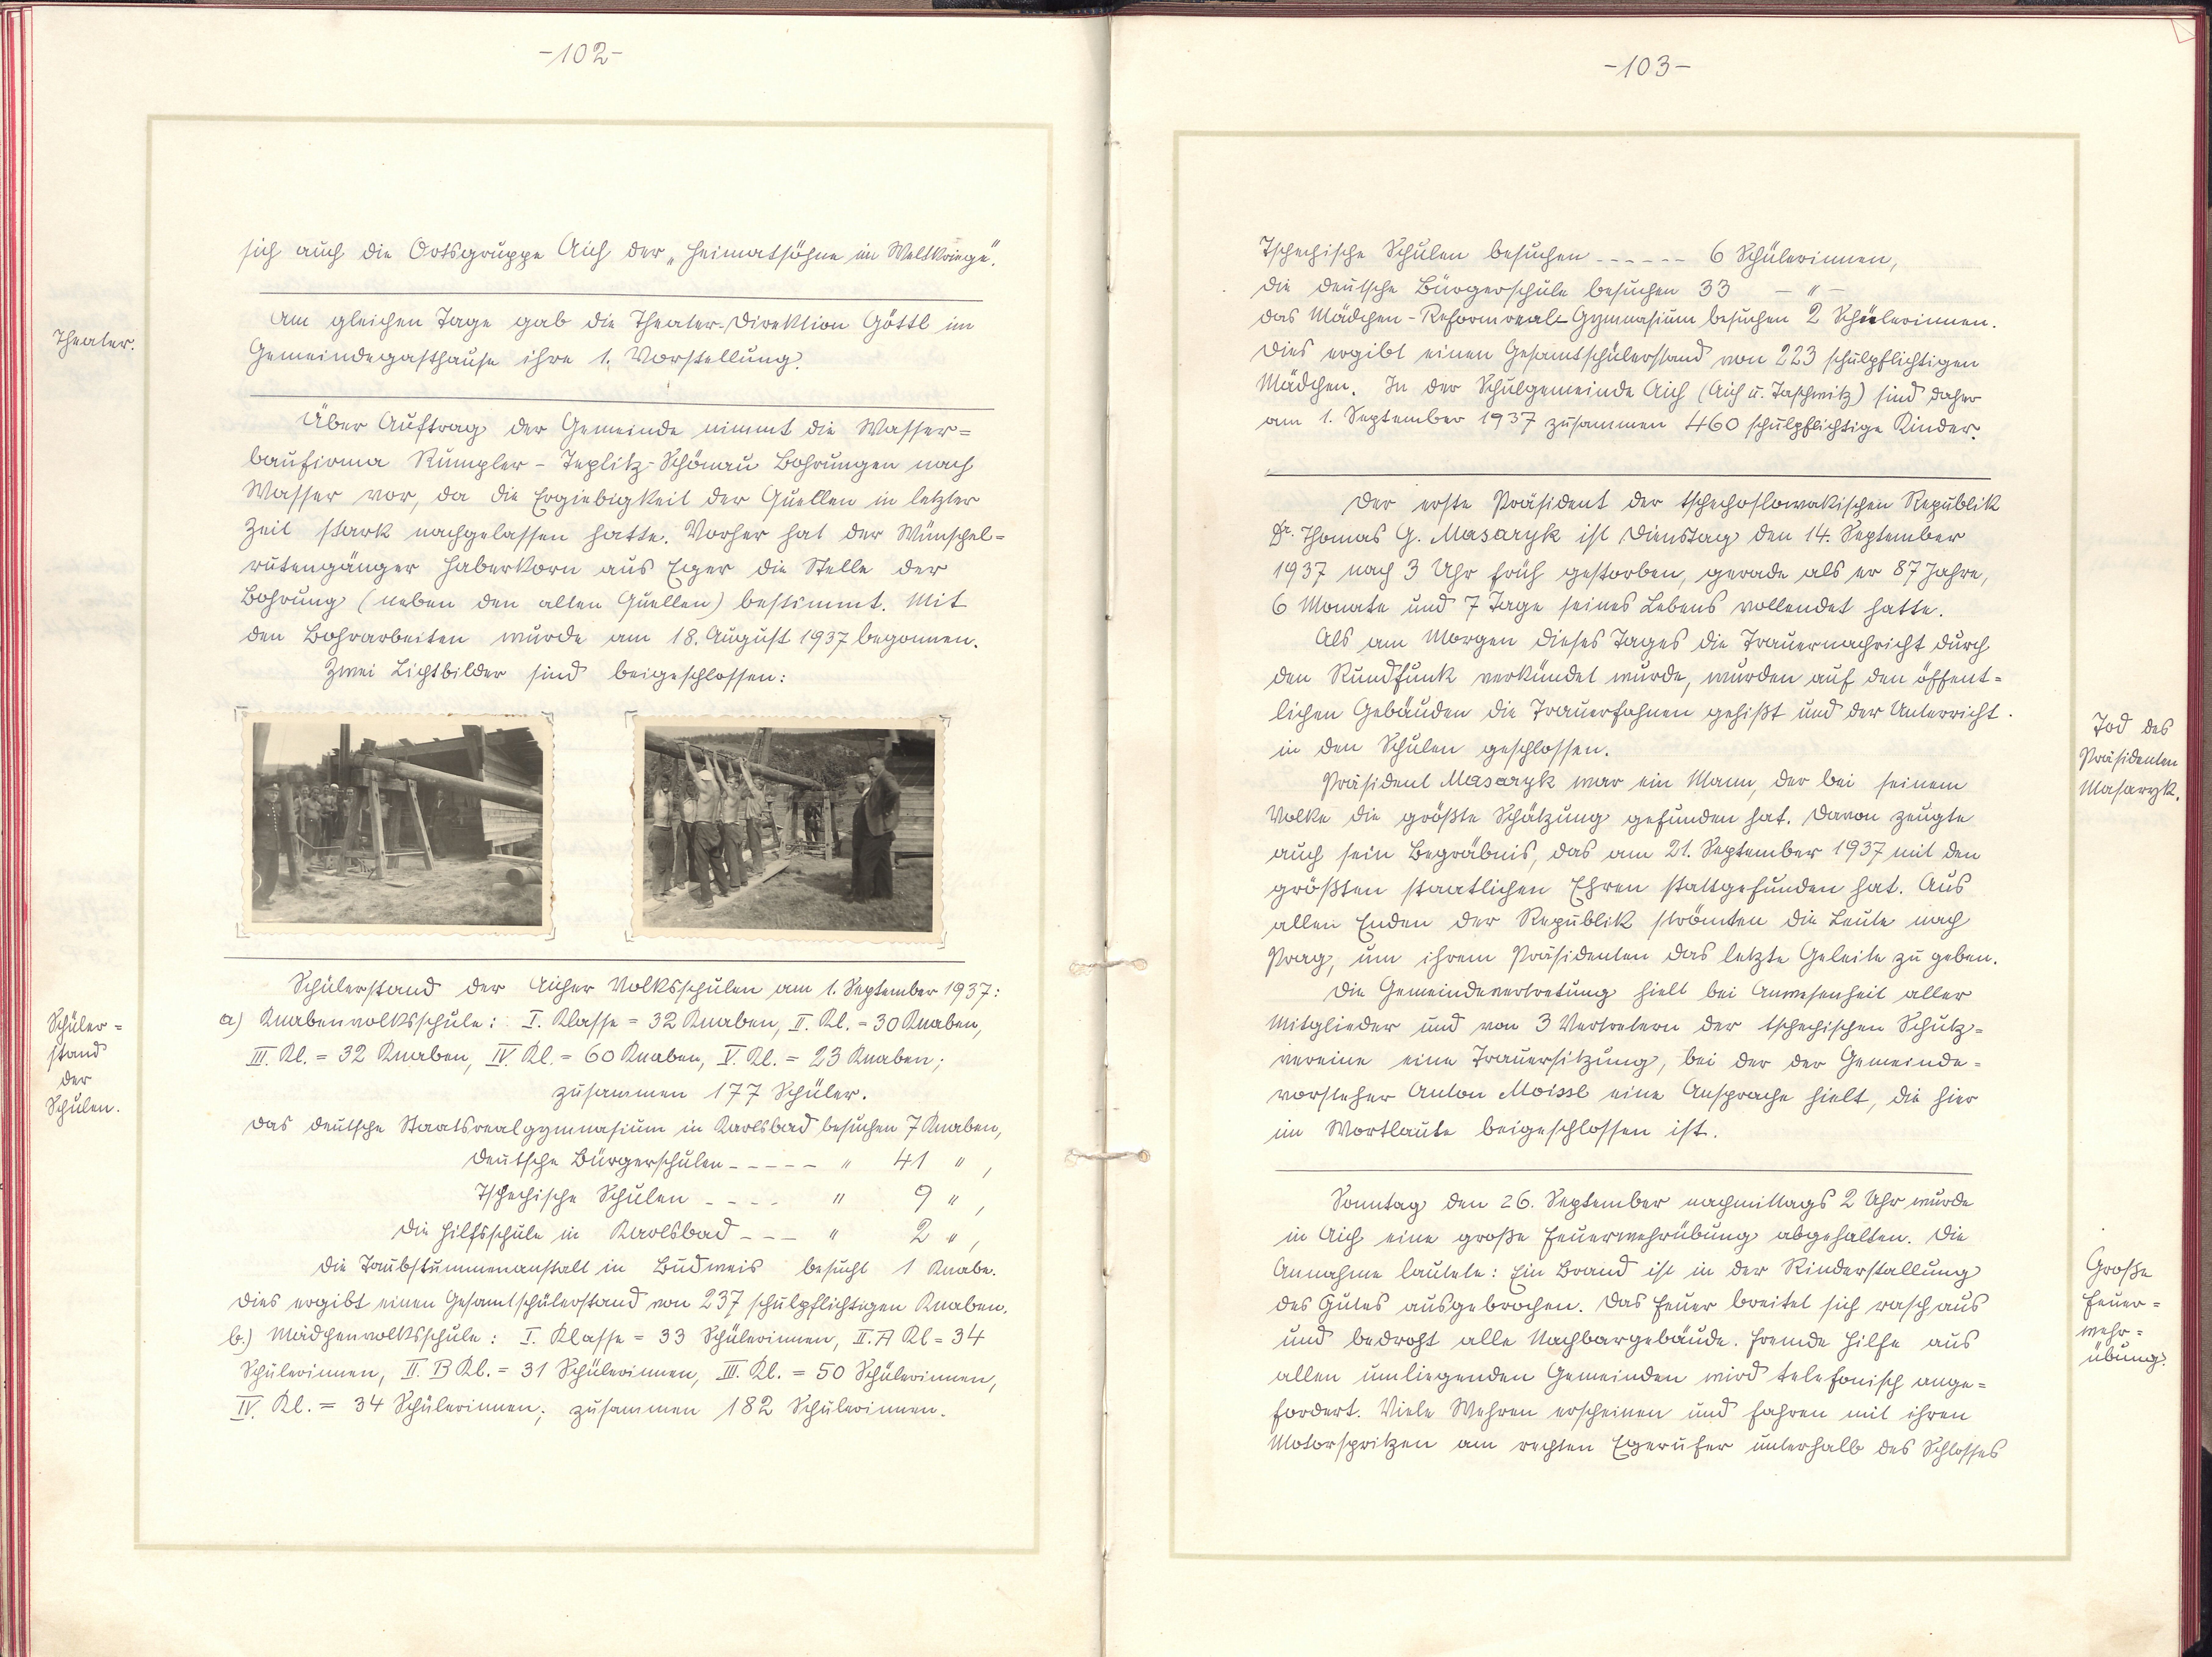 -102-
sich auch die Ortsgruppe Aich der „Heimatsöhne im Weltkriege".
Theater.
Am gleichen Tage gab die Theater-Direktion Göttl im
Gemeindegasthause ihre 1. Vorstellung.
Über Auftrag der Gemeinde nimmt die Wasser=
baufirma Rumpler - Teplitz-Schönau Bohrungen nach
Wasser vor, da die Ergiebigkeit der Quellen in letzter
Zeit stark nachgelassen hatte. Vorher hat der Wünschel=
rutengänger Haberkorn aus Eger die Stelle der
Bohrung (neben den alten Quellen) bestimmt. Mit
den Bohrarbeiten wurde am 18. August 1937 begonnen.
Zwei Lichtbilder sind beigeschlossen:
Schüler=
stand
der
Schulen.
Schülerstand der Aicher Volksschulen am 1. September 1937:
a) Knabenvolksschule: I. Klasse = 32 Knaben, II. Kl. = 30 Knaben,
III. Kl. = 32 Knaben, IV. Kl. = 60 Knaben, V. Kl. = 23 Knaben;
zusammen 177 Schüler.
Das deutsche Staatsrealgymnasium in Karlsbad besuchen 7 Knaben,
Deutsche Bürgerschulen ----- " 41 ",
Tschechische Schulen ---- " 9 ",
Die Hilfsschule in Karlsbad --- " 2 ",
Die Taubstummenanstalt in Budweis besucht 1 Knabe.
Dies ergibt einen Gesamtschülerstand von 237 schulpflichtigen Knaben.
b.) Mädchenvolksschule: I. Klasse = 33 Schülerinnen, II. A Kl = 34
Schülerinnen, II. B Kl. = 31 Schülerinnen, III. Kl. = 50 Schülerinnen,
IV. Kl. = 34 Schülerinnen; zusammen 182 Schülerinnen.
-103-
Tschechische Schulen besuchen ------ 6 Schülerinnen,
Die deutsche Bürgerschule besuchen 33 — " —
Das Mädchen-Reformreal-Gymnasium besuchen 2 Schülerinnen.
Dies ergibt einen Gesamtschülerstand von 223 schulpflichtigen
Mädchen. In der Schulgemeinde Aich (Aich u. Taschwitz) sind daher
am 1. September 1937 zusammen 460 schulpflichtige Kinder.
Der erste Präsident der tschechoslowakischen Republik
Dr. Thomas G. Masaryk ist Dienstag den 14. September
1937 nach 3 Uhr früh gestorben, gerade als er 87 Jahre,
6 Monate und 7 Tage seines Lebens vollendet hatte.
Als am Morgen dieses Tages die Trauernachricht durch
den Rundfunk verkündet wurde, wurden auf den öffent=
lichen Gebäuden die Trauerfahnen gehißt und der Unterricht
in den Schulen geschlossen.
Tod des
Präsidenten
Masaryk.
Präsident Masaryk war ein Mann, der bei seinem
Volke die größte Schätzung gefunden hat. Davon zeugte
auch sein Begräbnis, das am 21. September 1937 mit den
größten staatlichen Ehren stattgefunden hat. Aus
allen Enden der Republik strömten die Leute nach
Prag, um ihrem Präsidenten das letzte Geleite zu geben.
Die Gemeindevertretung hielt bei Anwesenheit aller
Mitglieder und von 3 Vertretern der tschechischen Schutz=
vereine eine Trauersitzung, bei der der Gemeinde=
vorsteher Anton Moissl eine Ansprache hielt, die hier
im Wortlaute beigeschlossen ist.
Sonntag den 26. September nachmittags 2 Uhr wurde
in Aich eine große Feuerwehrübung abgehalten. Die
Annahme lautete: Ein Brand ist in der Rinderstallung
des Gutes ausgebrochen. Das Feuer breitet sich rasch aus
und bedroht alle Nachbargebäude. Fremde Hilfe aus
allen umliegenden Gemeinden wird telefonisch ange=
fordert. Viele Wehren erscheinen und fahren mit ihren
Motorspritzen am rechten Egerufer unterhalb des Schlosses
Große
Feuer=
wehr=
übung.